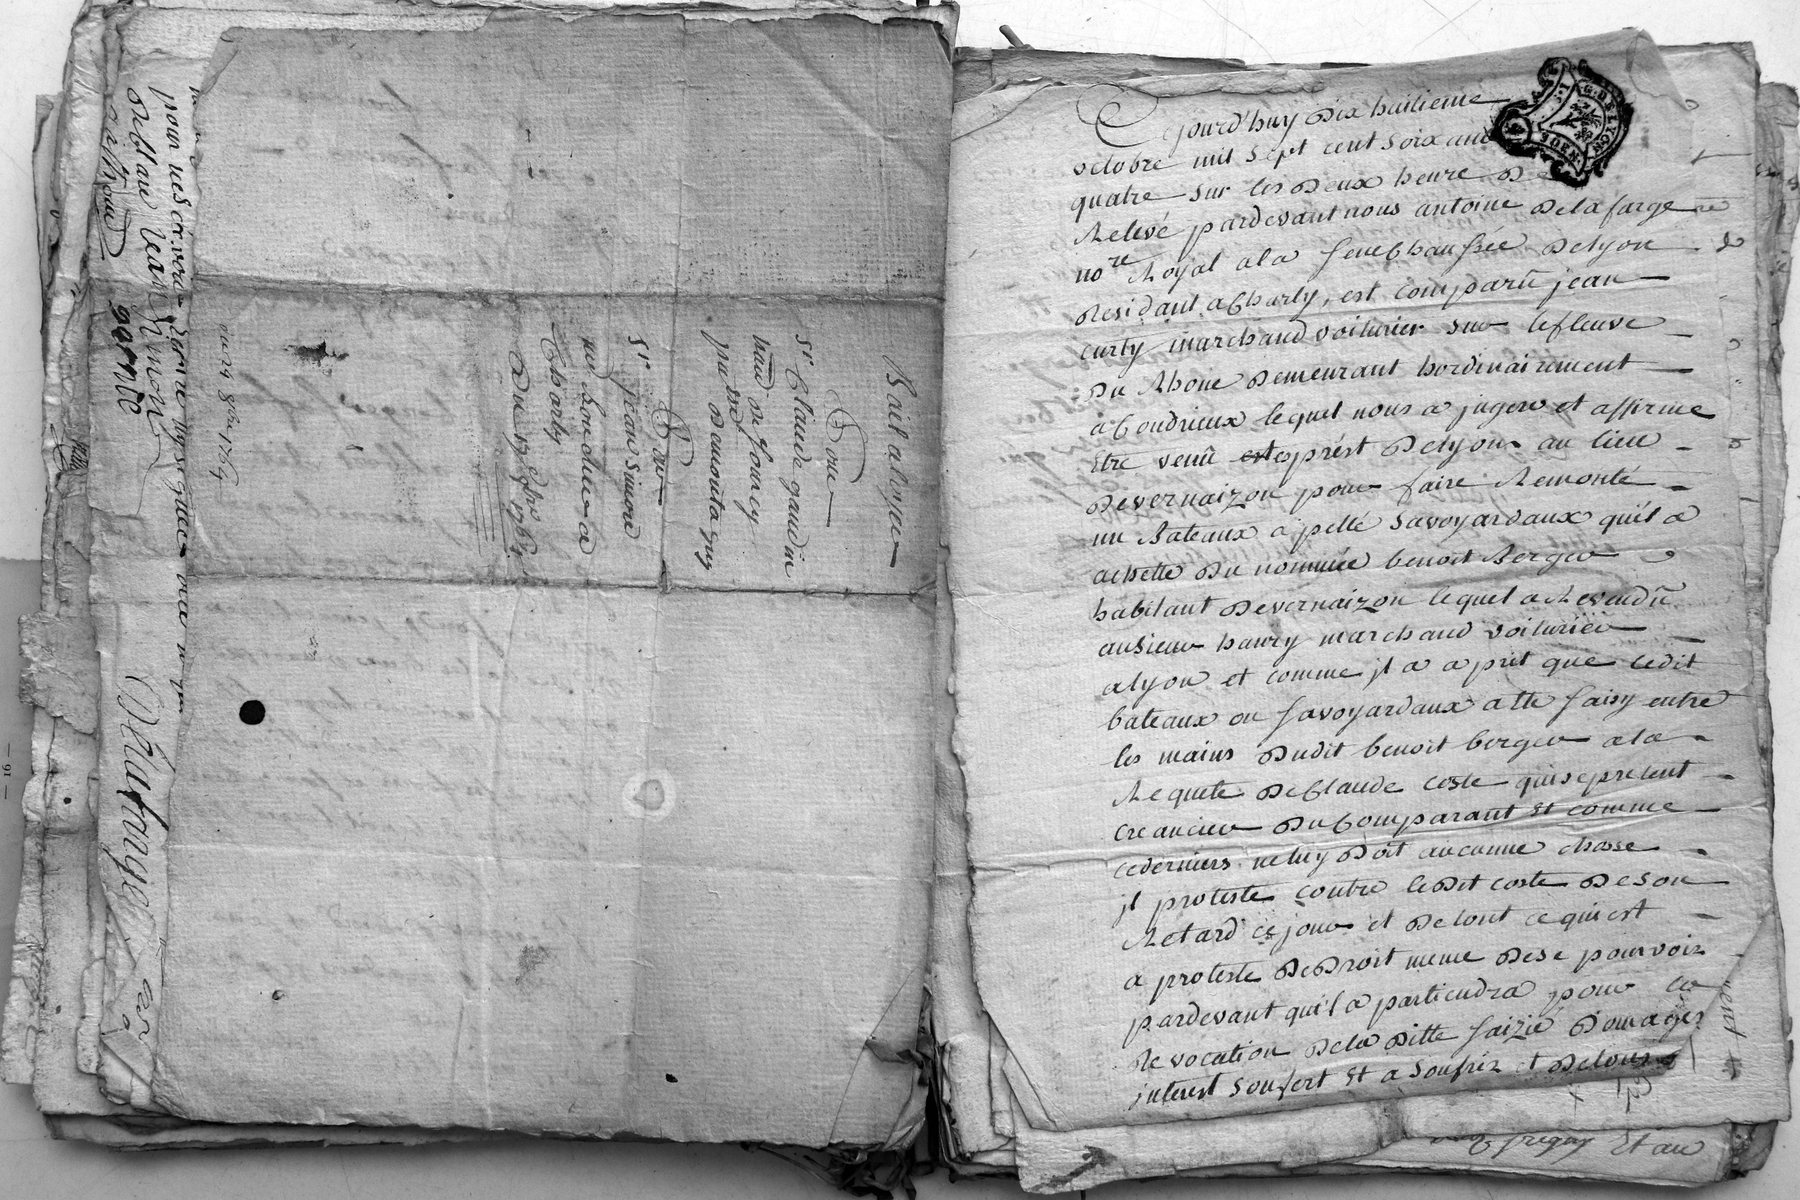 pour nes cèvoir
Deblanc jean Simond
garnle
Delafarge
ou 29 8bre 1764
Bail aloyer
Pour
Sr Claude gaudin
De fourcy
Demontagny
Par
Sr jean Simon
Charly
Du 17 8bre 1764
16
Cejourd'huy Dix huitieme
octobre mil sept cent soixante
quatre sur les Deux heure De
Relevé pardevant nous antoine Delafarge
nore Royal ala Senechaussée Delyon
Residant a Charly, est comparû jean
curty marchand voiturier sur lefleuve
Du Rhone Demeurant hordinairement
a Condrieux lequel nous a jugero et affirme
Etre venû exsprést Delyon au lieu
Devernaizon pour faire Remonté
un Bateaux apellé Savoyardaux qu'il a
achette Du nommée benoit Berger
habitant Devernaizon lequel a Revendû
ausieur haury marchand voiturier
alyon et comme jl a aprit que ledit
bateaux ou Savoyardaux a tte saisy entre
les mains Dudit benoit berger ala
Requete De Claude coste quisepretent
creancier Du Comparant Et comme
cederniers neluy Doit aucunne chose
jl proteste contre leDit coste Deson
Retard cejour et Detout ce quiest
a proteste DeDroit meme Dese pourvoir
pardevant qu'il apartiendra pour la
Revocation Dela Ditte saizié Domages
interest soufert Et a Soufrir et Detous
G.DE LYON
ment
Et au